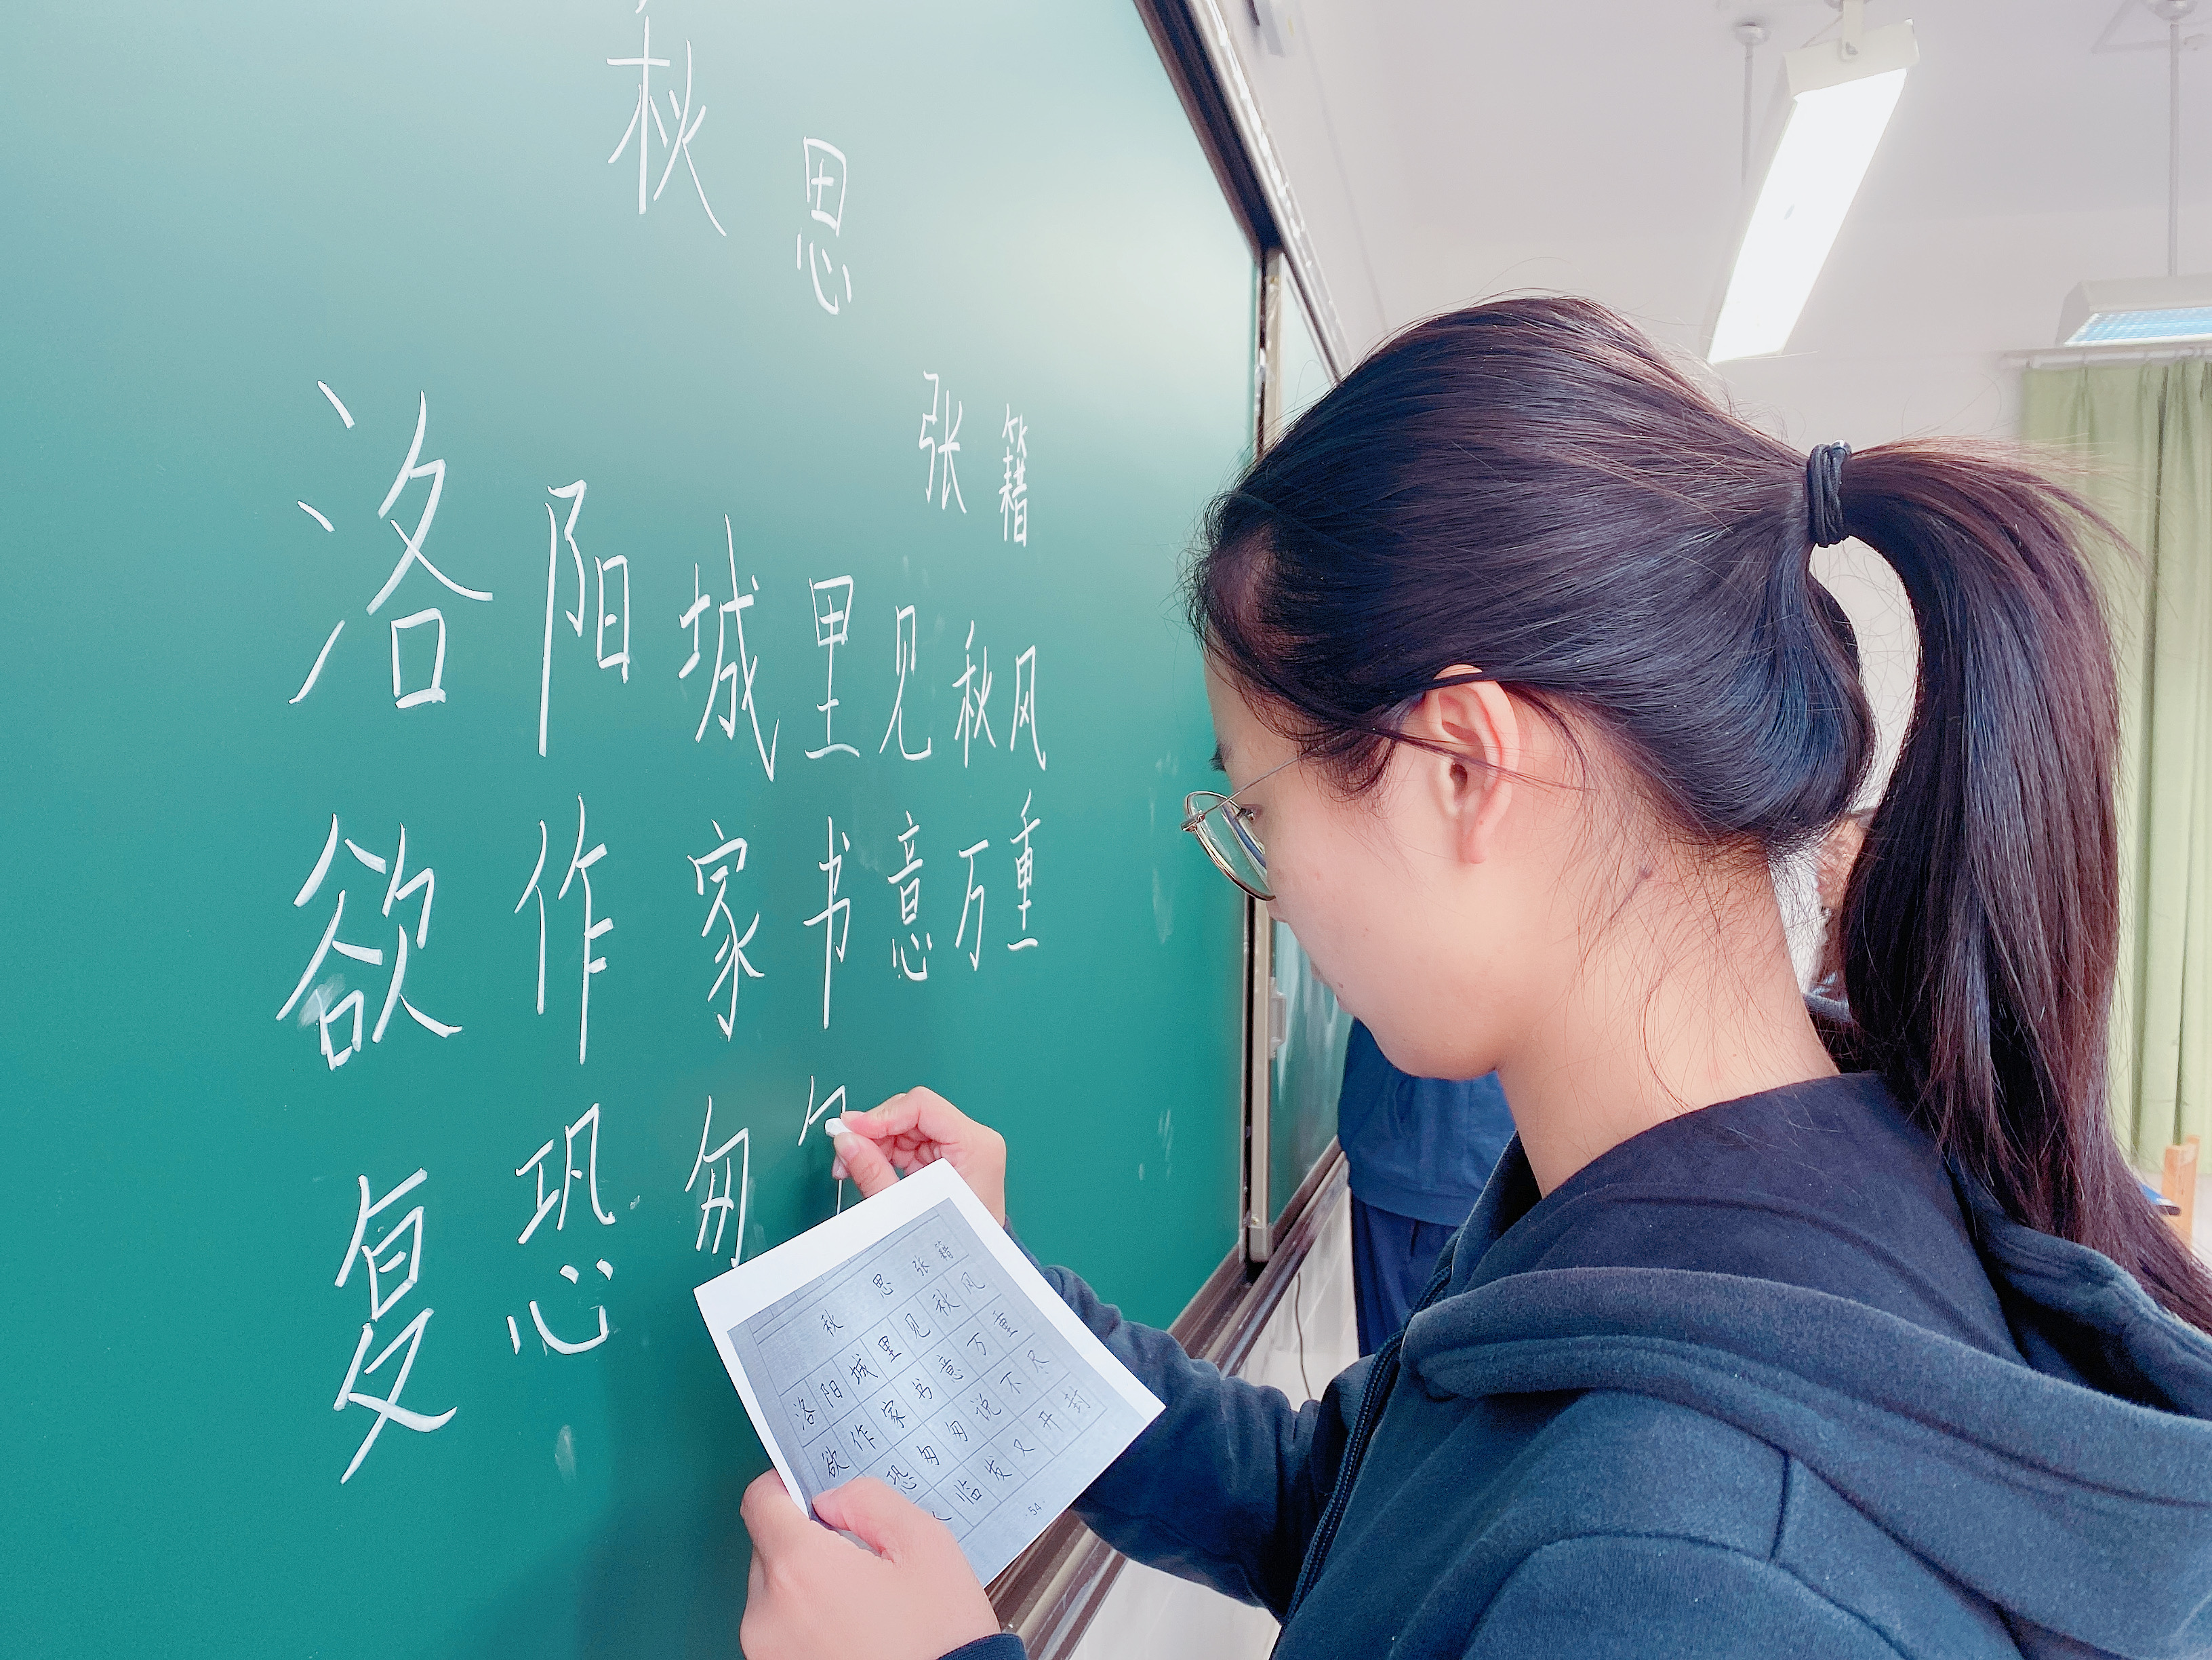 秋思
张籍
洛阳城里见秋风
欲作家书意万重
复恐匆
秋思 张籍
洛阳城里见秋风
欲作家书意万重
恐匆匆说不尽
临发又开封
54